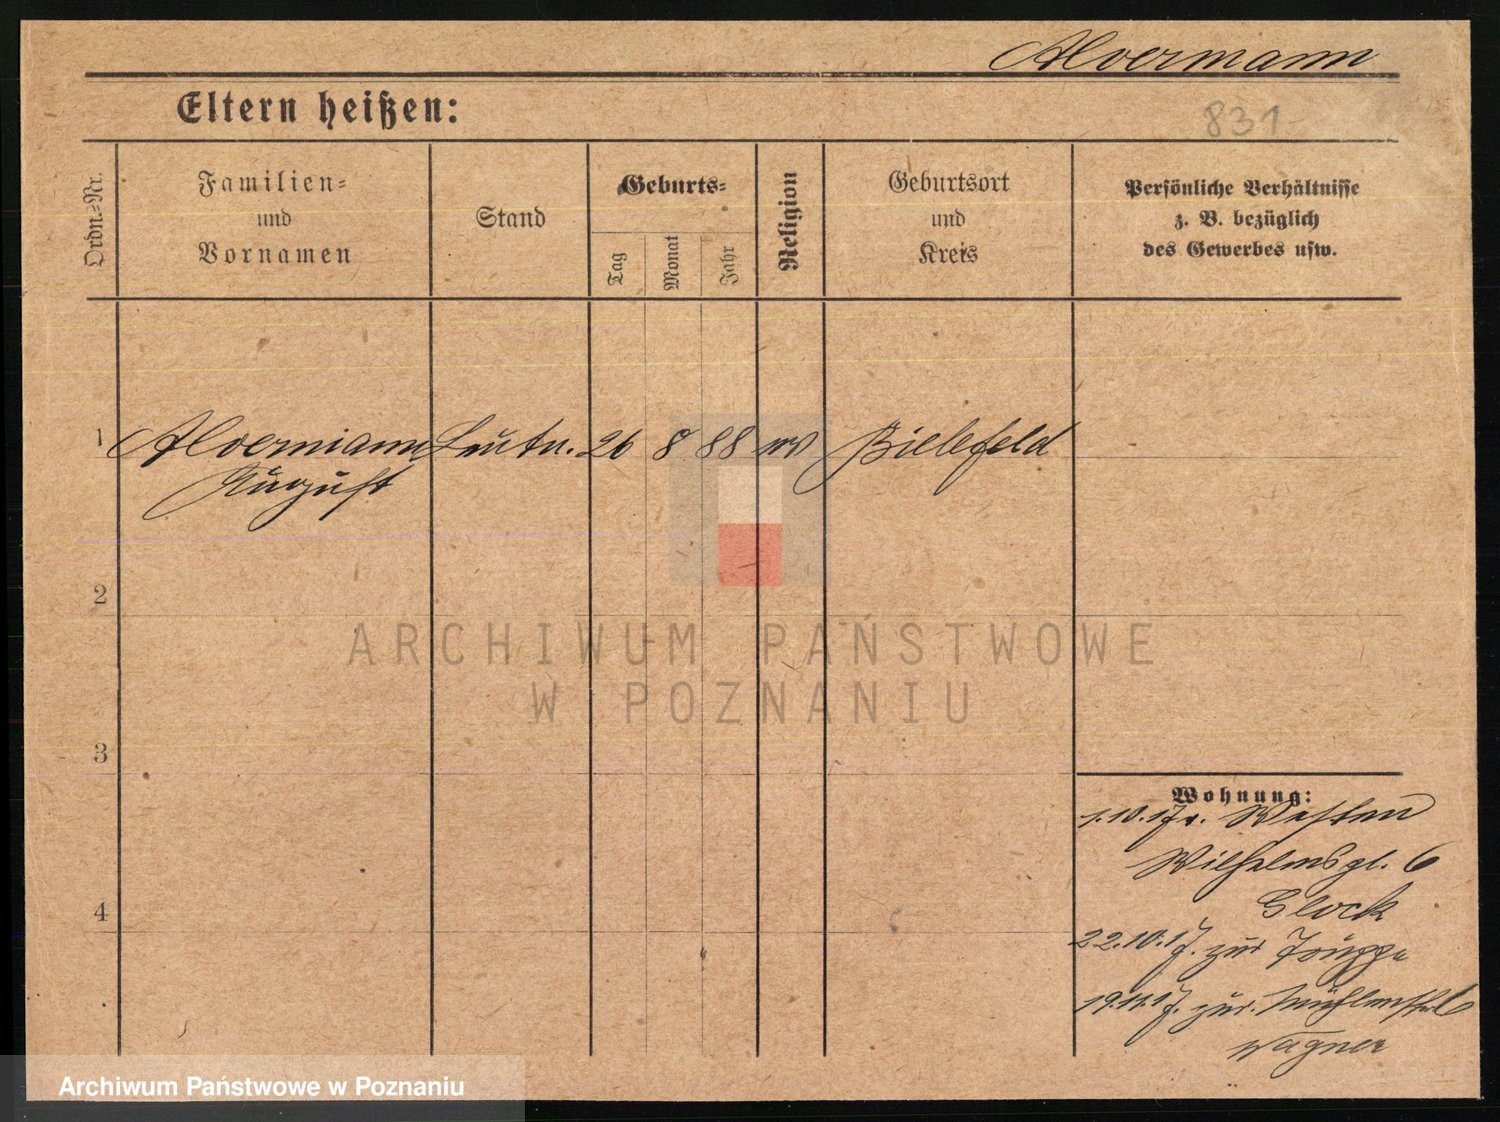 Alvermann
Eltern heißen:
831
Ordn.=Nr.
Familien=
und
Vornamen
Stand
Geburts=
Tag
Monat
Jahr
Religion
Geburtsort
und
Kreis
Persönliche Verhältnisse
z. B. bezüglich
des Gewerbes usw.
1 Alvermann Leutn. 26 8 88 ev Bielefeld
August
2
3
4
Wohnung:
1.10.17 v.
Wilhelmspl. 6
Glock
22.10.17. zur Truppe
19.11.17. zur. Mühlenstr 6
Wagner
ARCHIWUM PAŃSTWOWE
W POZNANIU
Archiwum Państwowe w Poznaniu